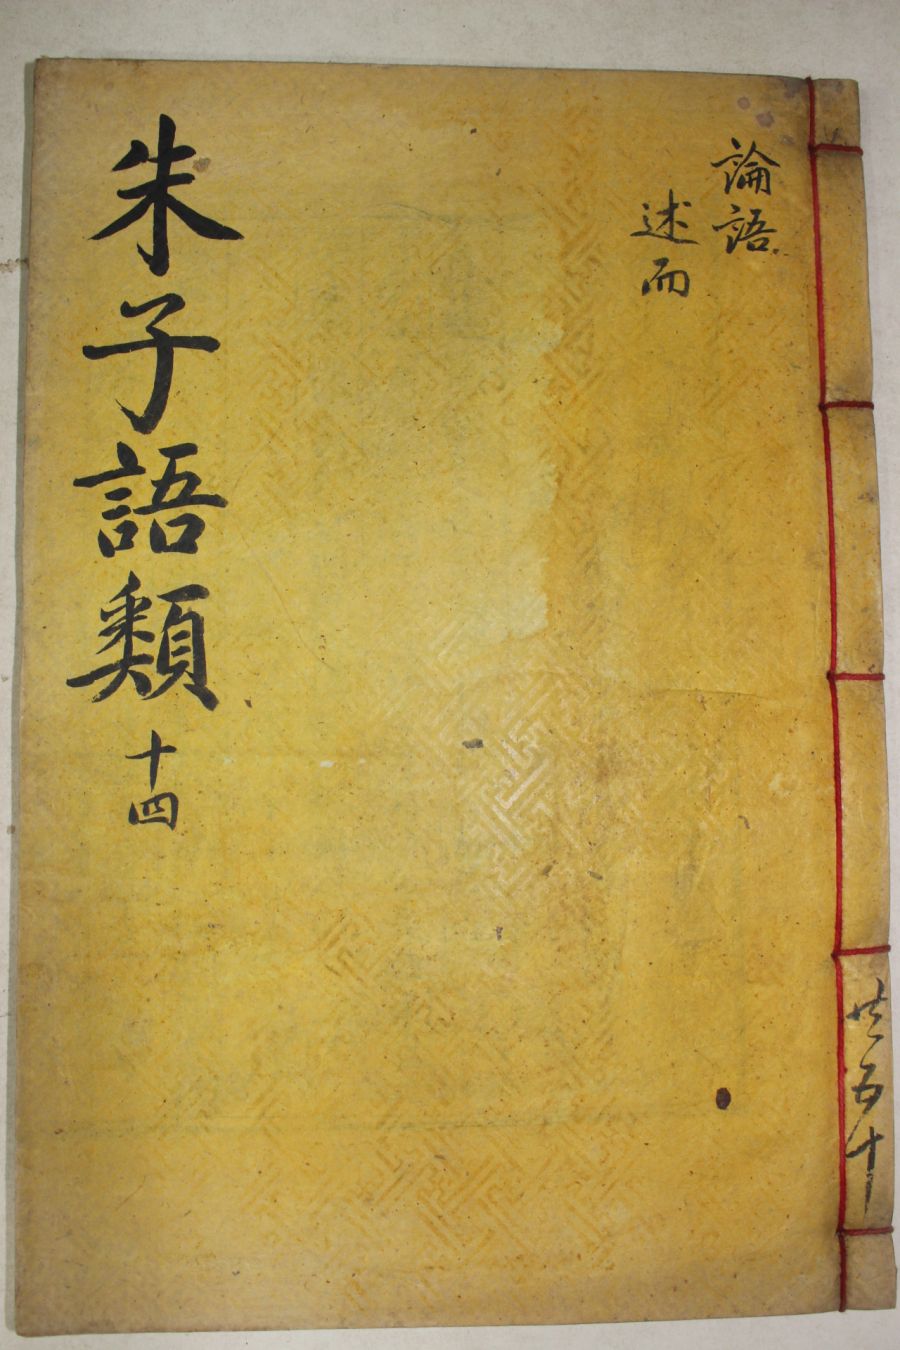 論語
述而
朱子語類 十四
共五十